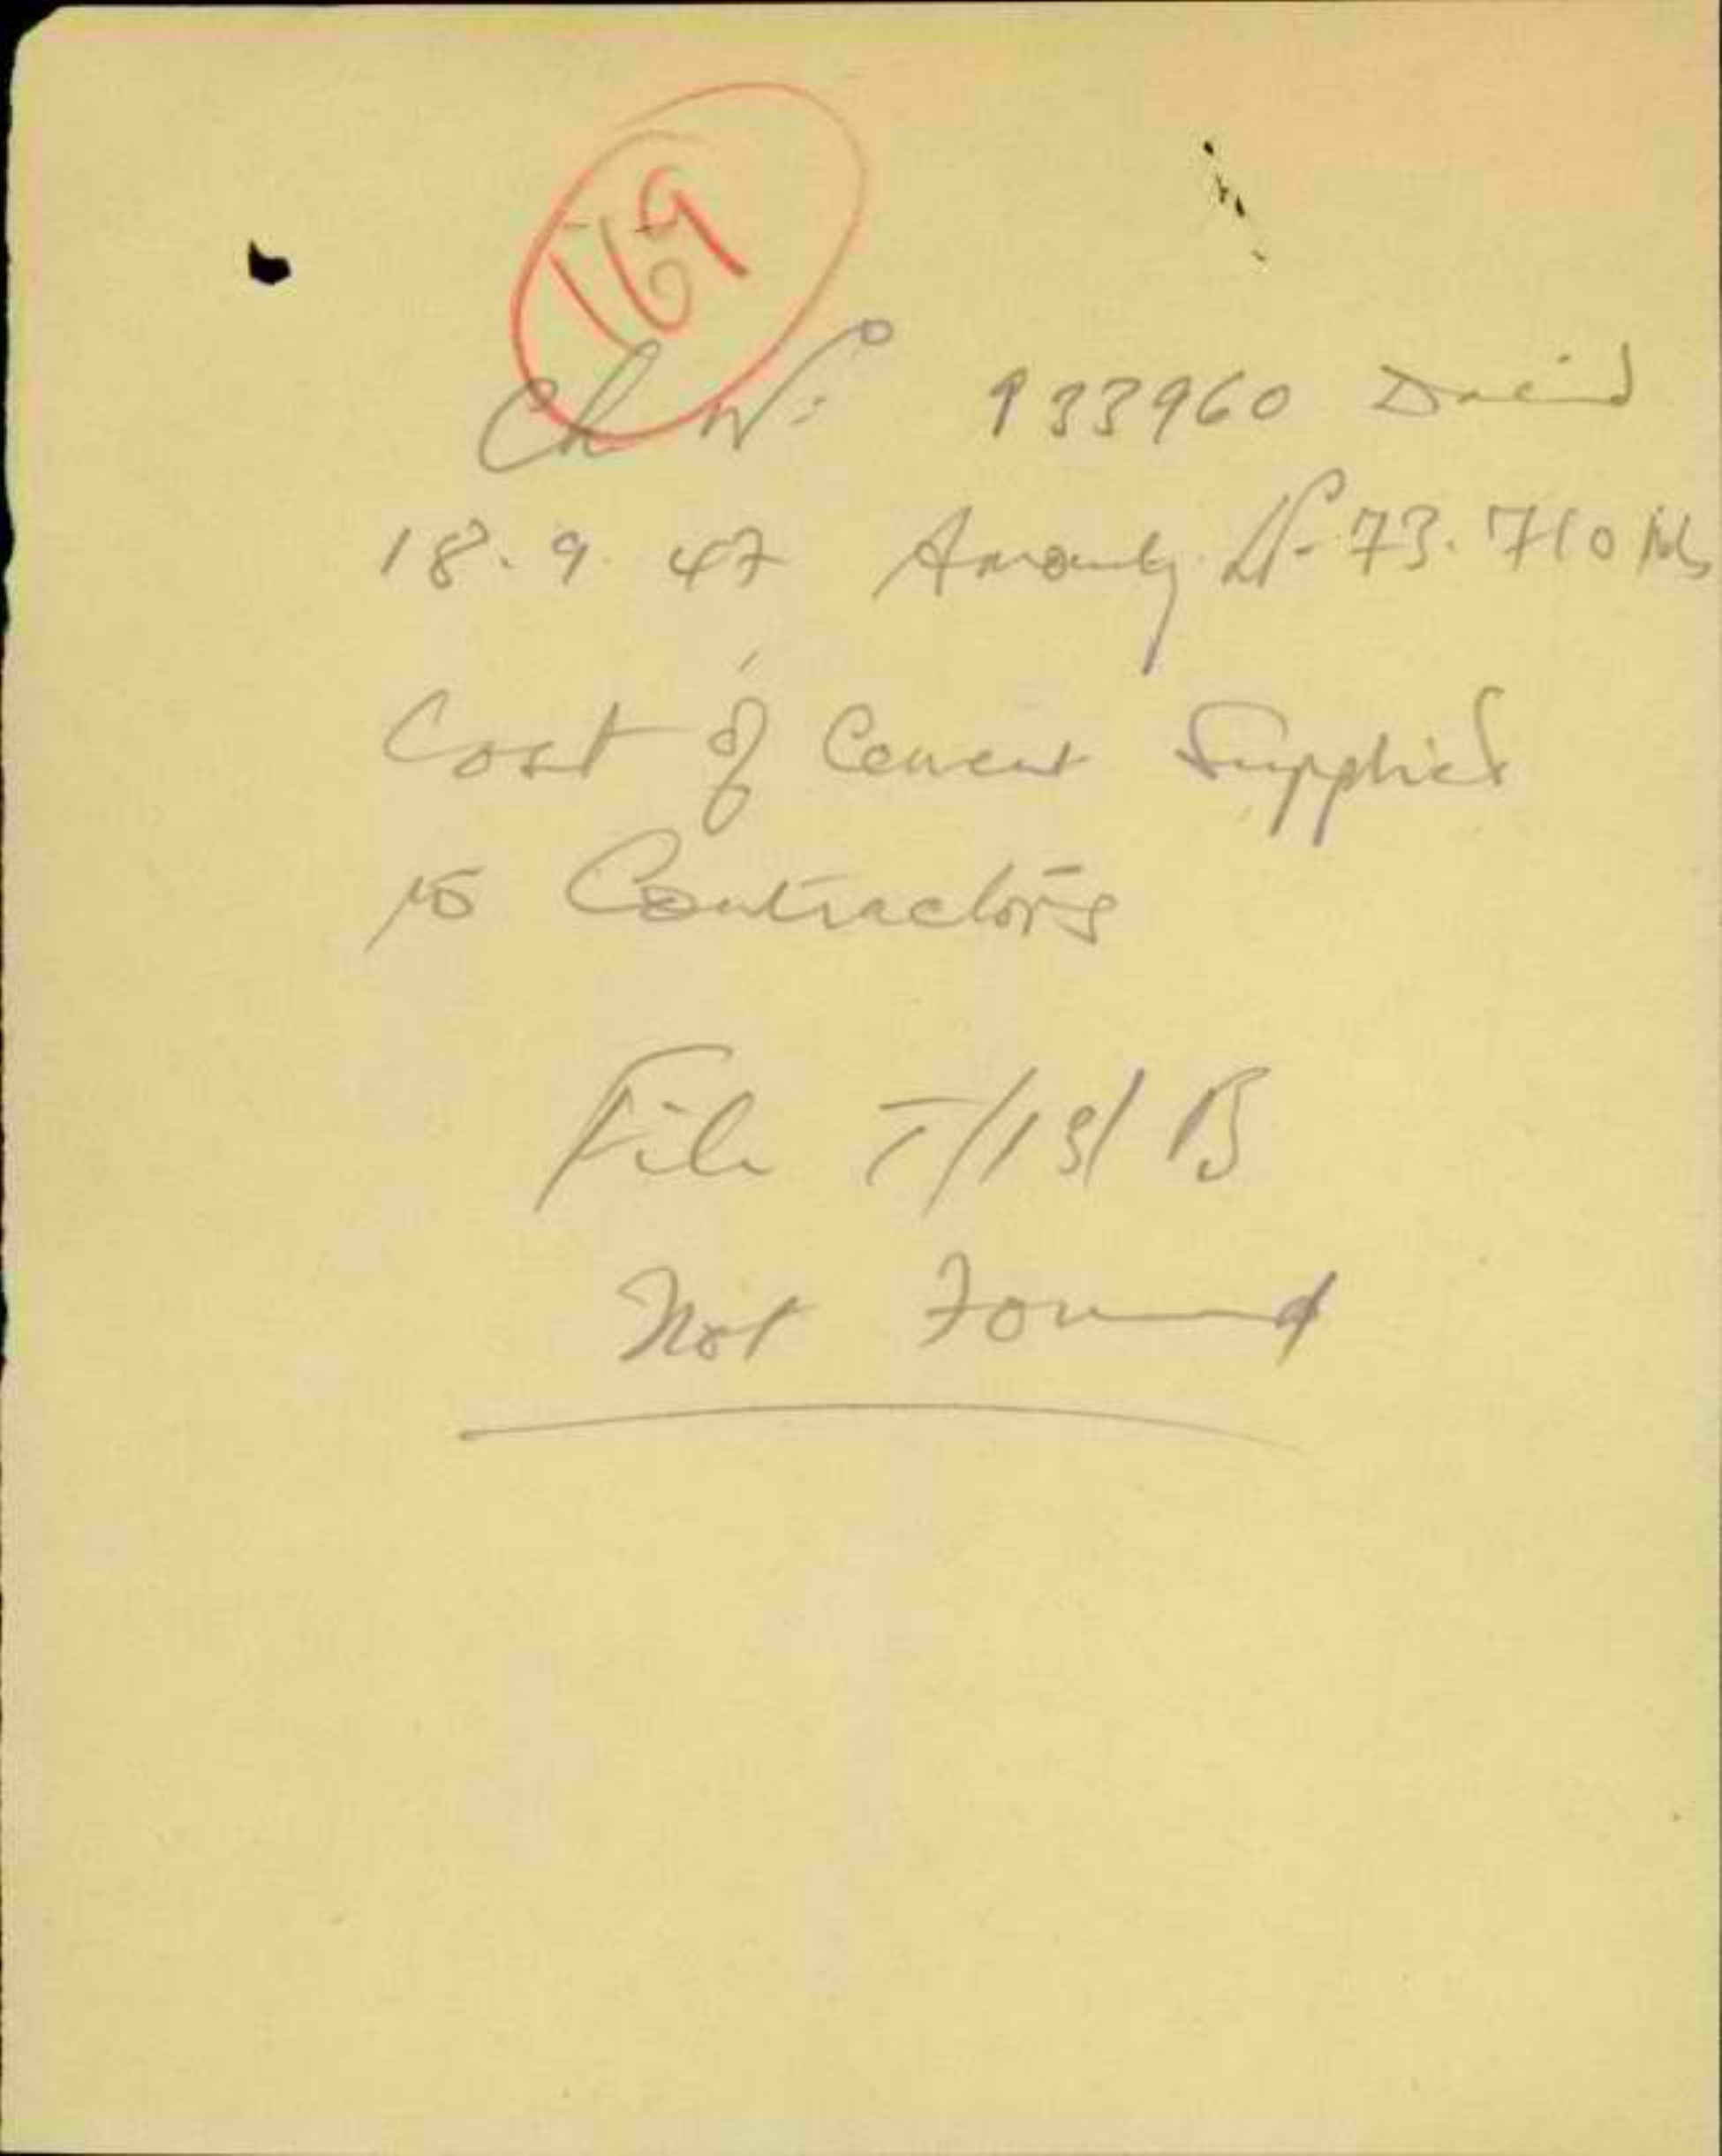 169
Ch. No 933960 Dated
18.9.47 Amountg LP. 73.710 Mls
Cost of Cement Supplied
to Contractors
File T/13/B
Not Found